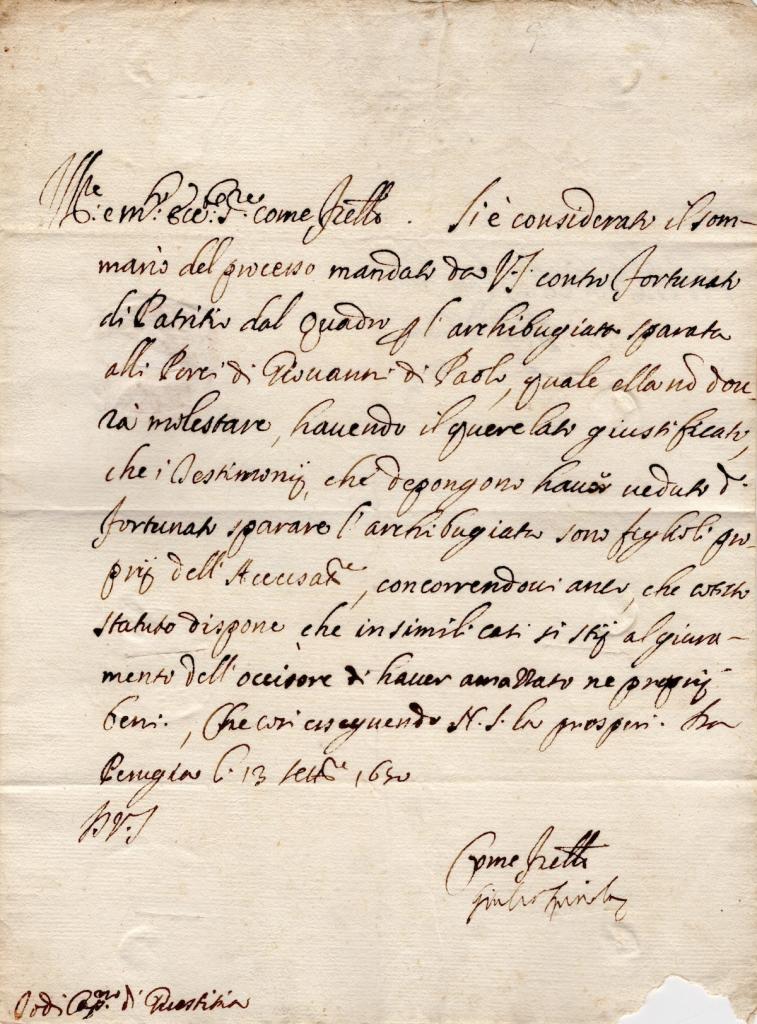 Ill.re e m.to Ecc.te S.re come fratello. Si è considerato il som-
mario del processo mandato da V.S. contro fortunato
di Patritio dal Quadro p l'archibugiata sparata
alli Porci di Giovanni di Paolo, quale ella nō dou-
rà molestare, hauendo il querelato giustificato,
che i Testimonij, che depongono hauer ueduto d.o
fortunato sparare l'archibugiata sono figlioli pro-
prij dell'Accusat.re, concorrendoui anco, che cotesto
statuto dispone, che in simili casi si stij al giura-
mento dell'occisore di hauer amazzato ne proprij
beni., Che così eseguendo N.S. la prosperi. Da
Perugia li 13 sett.re 1630
D V.S
Come fratello
Giulio
Todi Cap.no di Giustitia